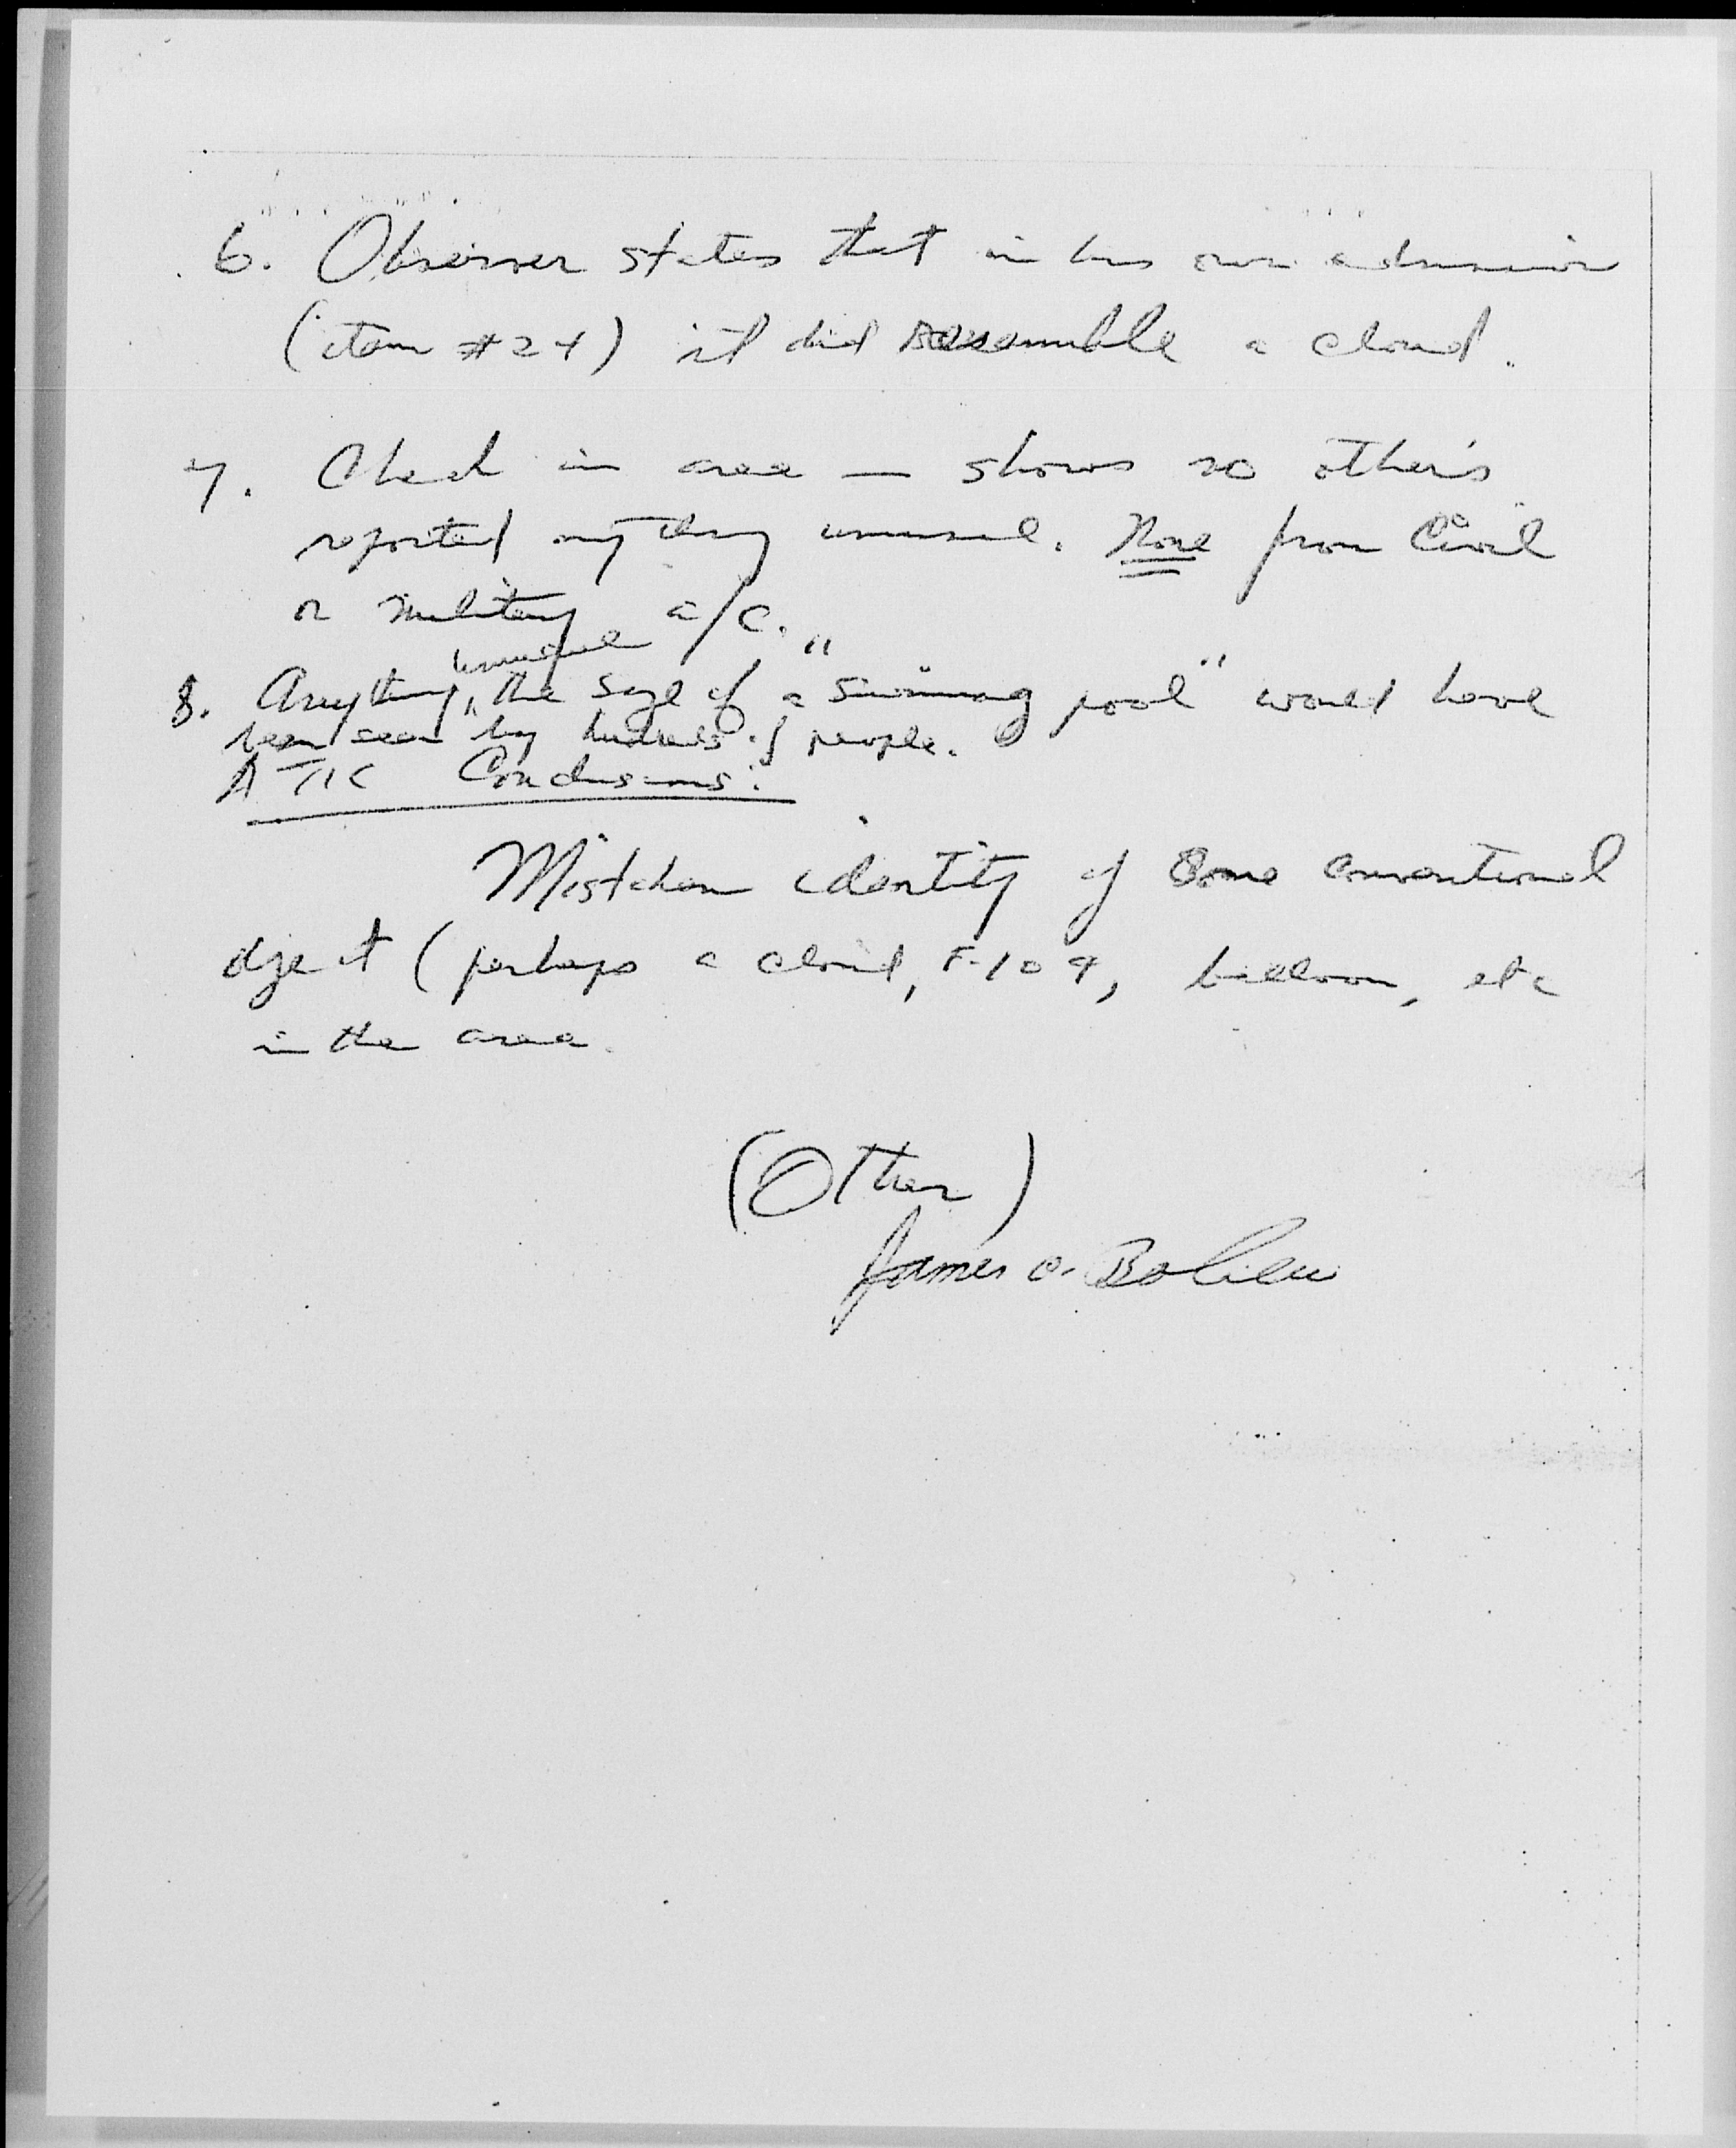 6. Observer states that in his own admission
(item #24) it did resemble a cloud.
7. Check in area — shows no others
reported anything unusual. None from Civil
or military a/c.
unusual
8. Anything, the size of a "swimming pool" would have
been seen by hundreds of people.
ATIC Conclusions:
Mistaken identity of some conventional
object (perhaps a cloud, F-104, balloon, etc
in the area.
(Other)
James C.